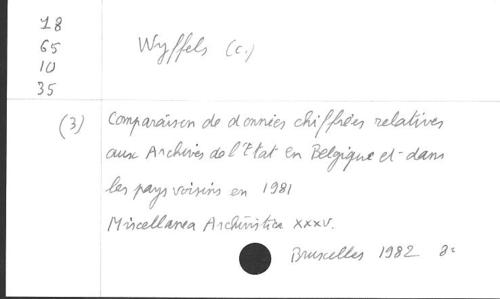 18
65
10
35
Wyffels (C.)
(3)
Comparaison de données chiffrées relatives
aux Archives de l'Etat en Belgique et dans
les pays voisins en 1981
Miscellanea Archivistica XXXV.
Bruxelles 1982 8°